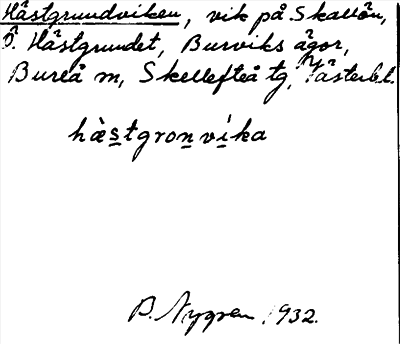 Hästgrundviken, vik på Skallön,
Ö. Hästgrundet, Burviks ägor,
Bureå m, Skellefteå tg, Västerb.l.
hàstgronvíka
B. Nygren 1932.